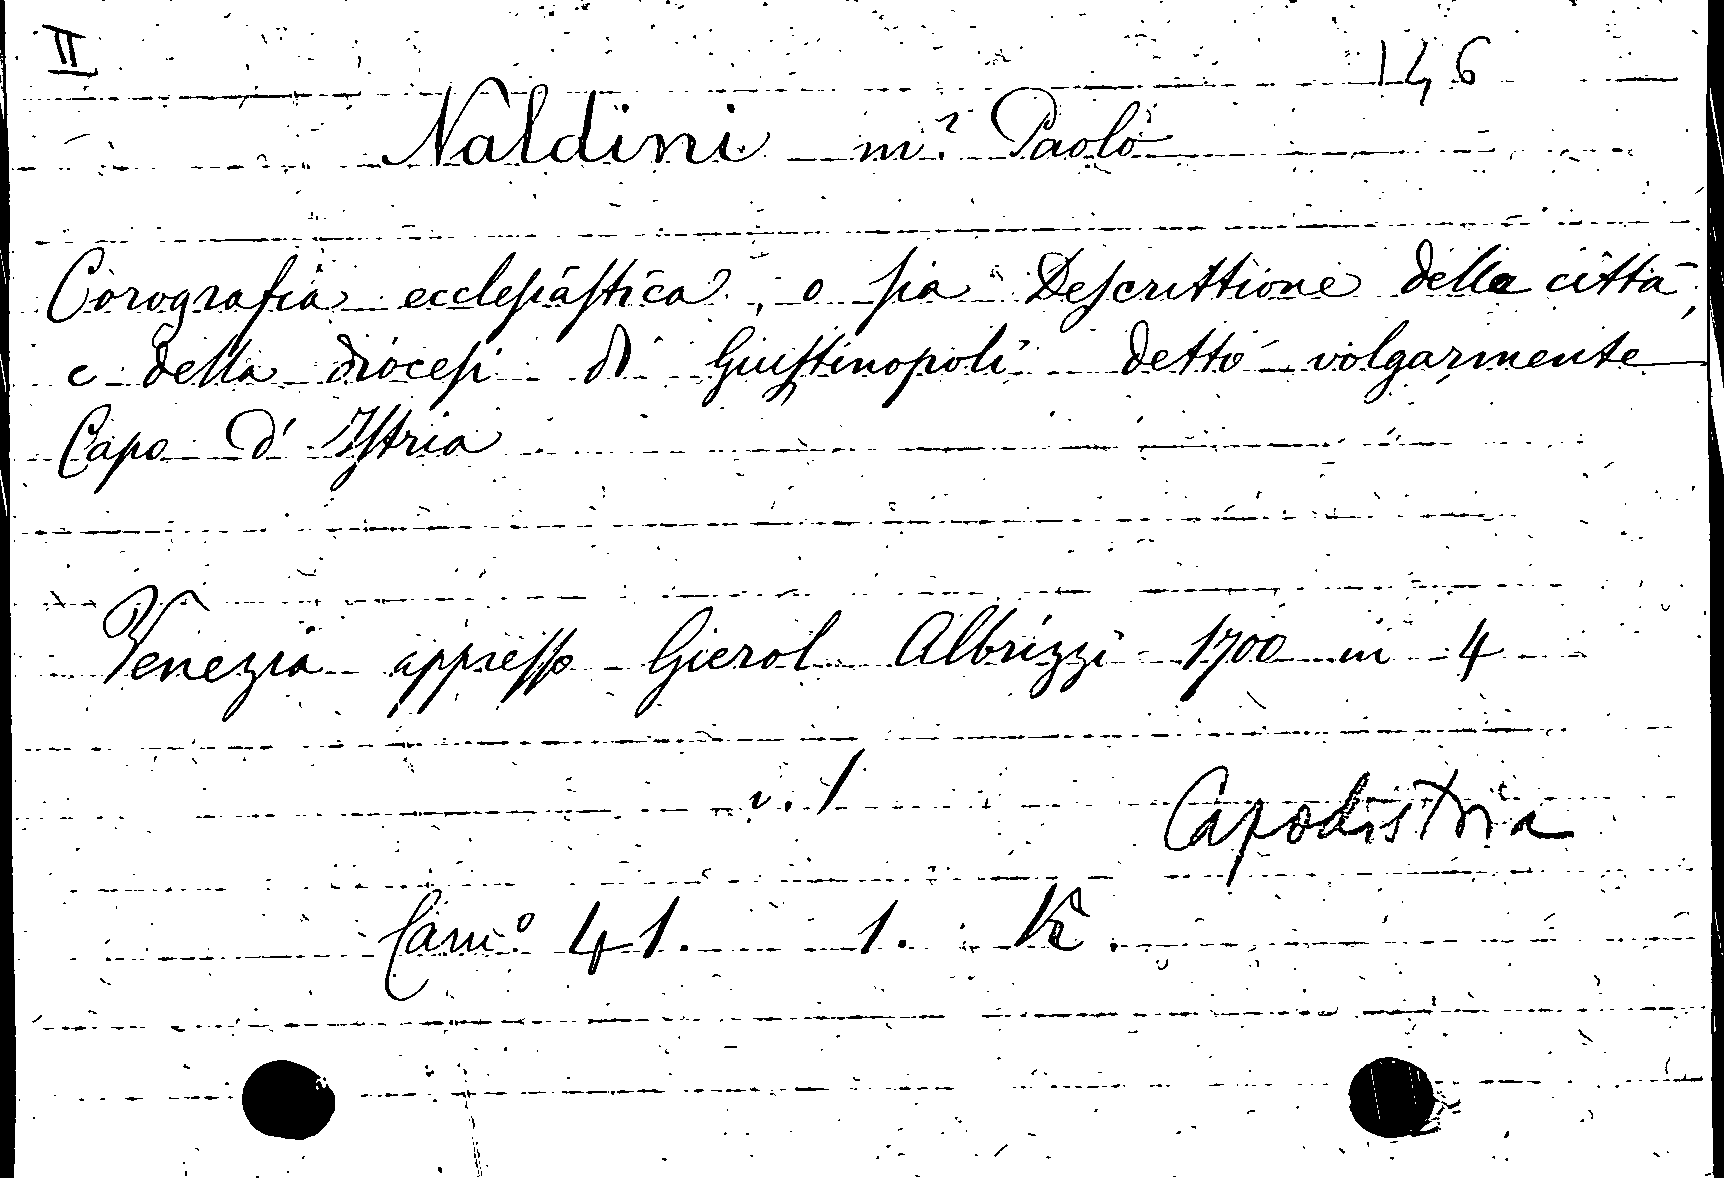 II
146
Naldini m.r Paolo
Corografia ecclesiastica, o sia Descrittione della città,
e della diocesi di Giustinopoli detto volgarmente
Capo d' Istria
Venezia appresso Gierol. Albrizzi 1700 in 4
v. 1
Capodistria
Cam.o 41. 1. K.